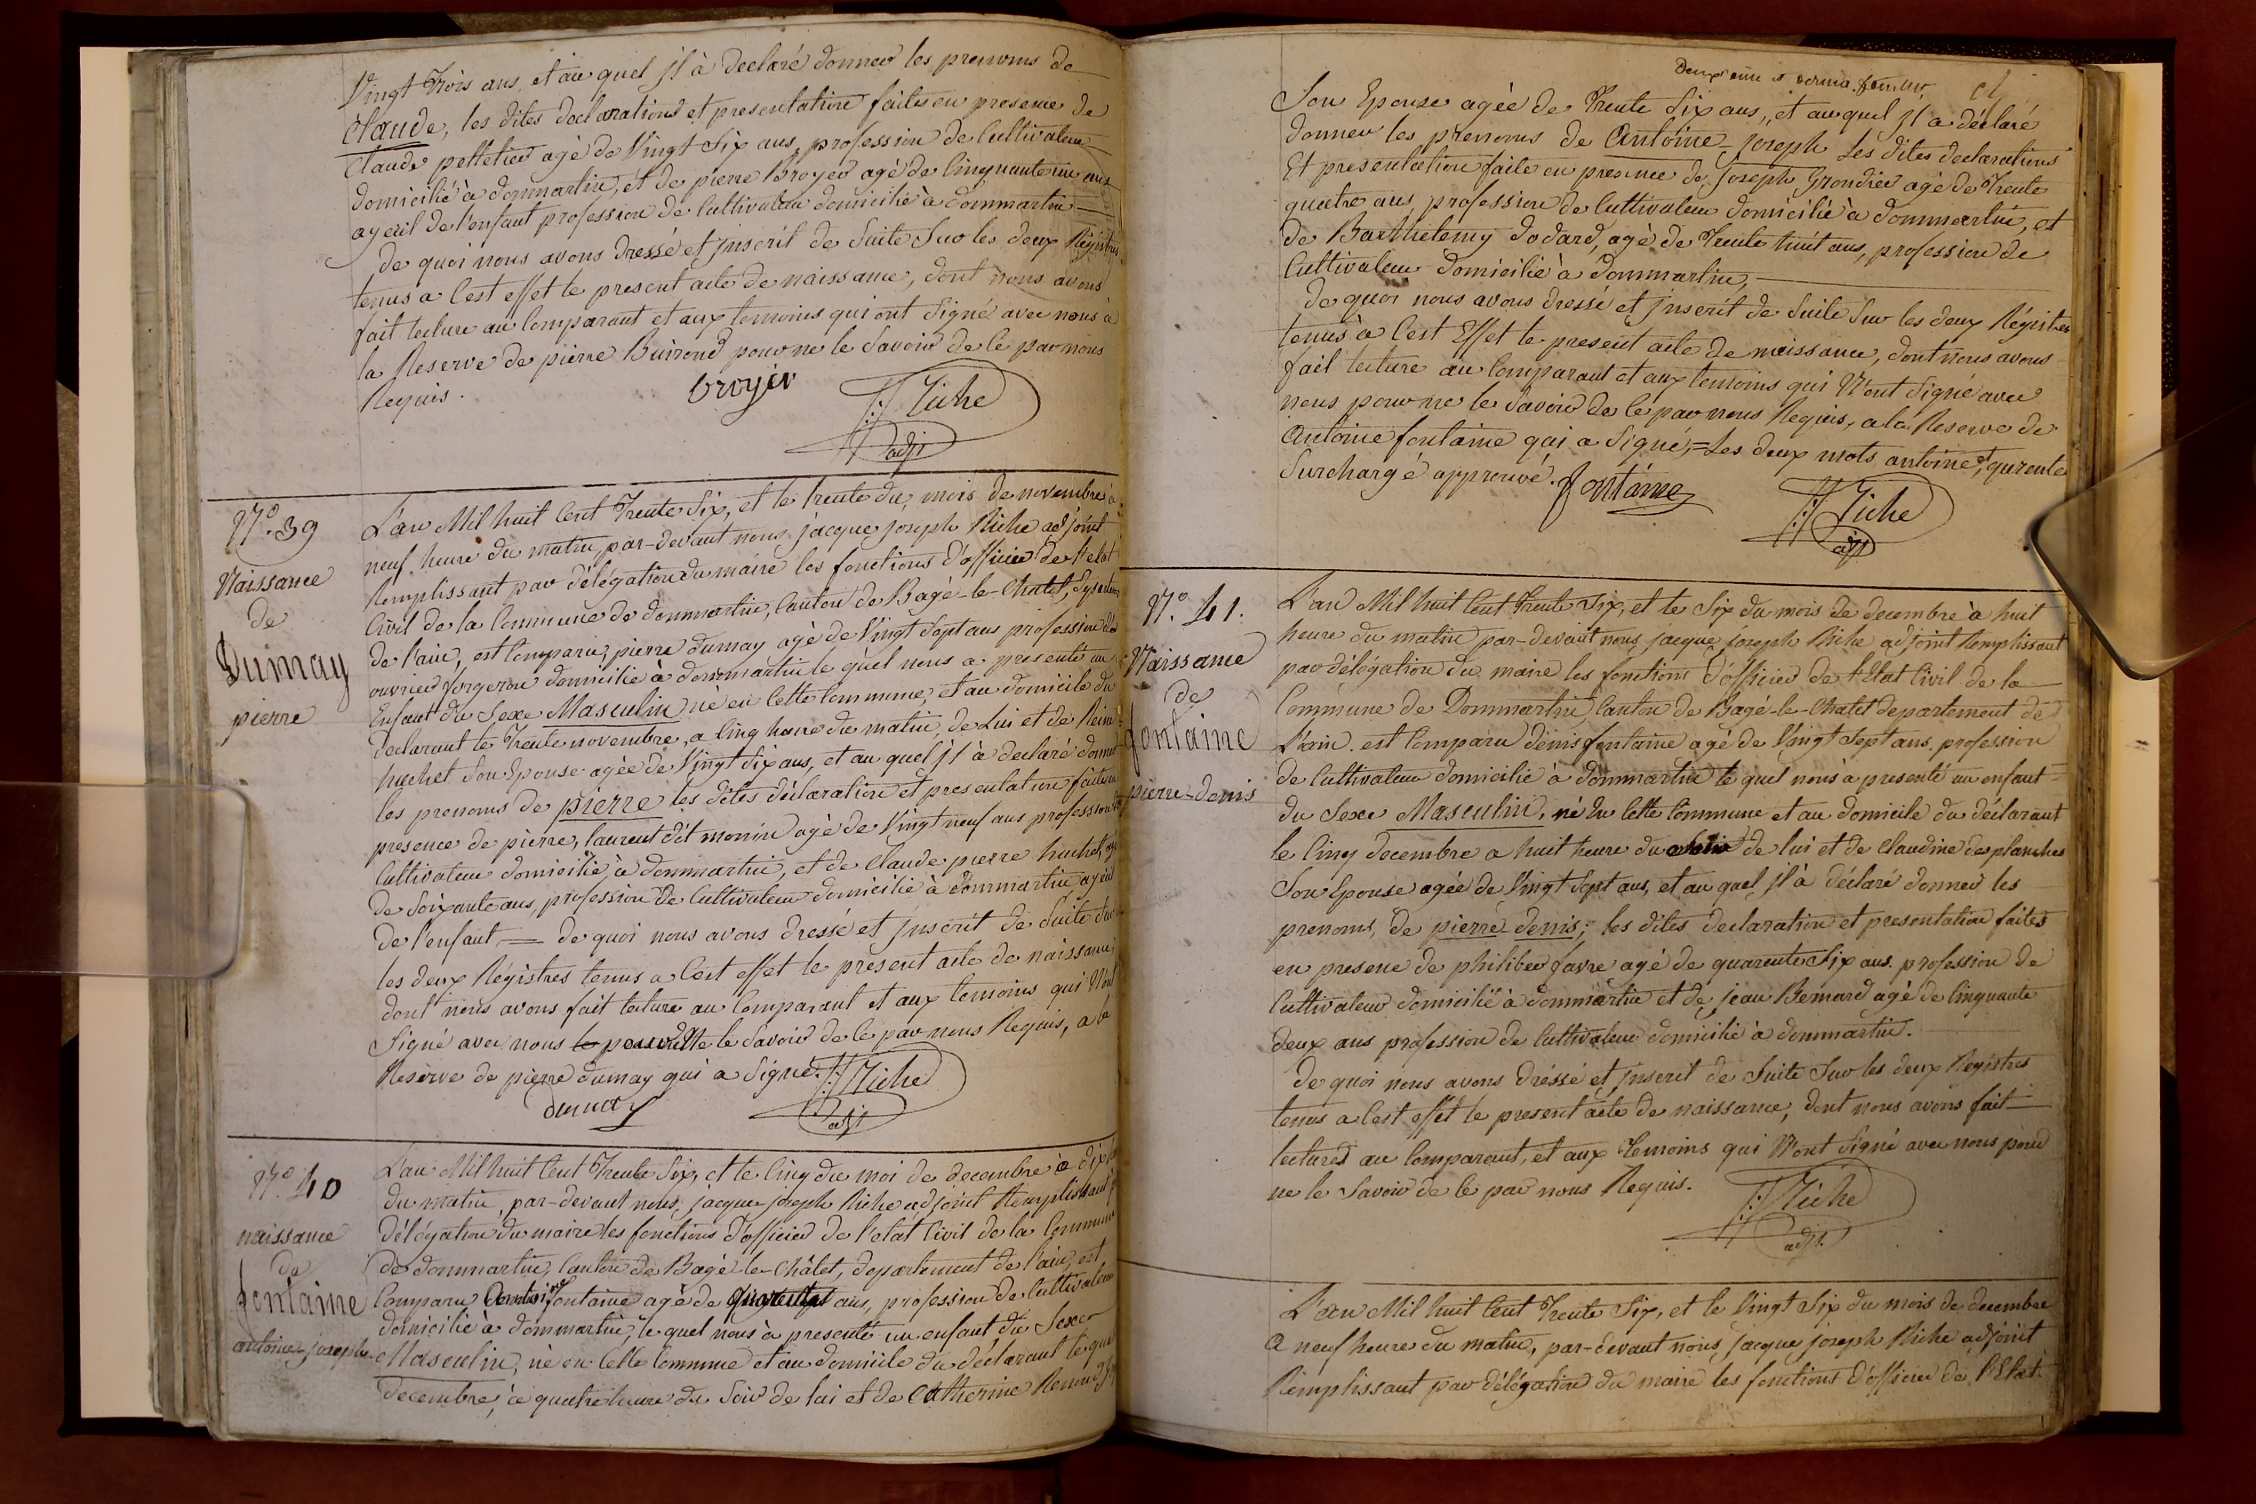 Vingt Trois ans, et au quel j'l à declaré donner les prenoms de
Claude, les dites declarations et presentation faites en presence de
Claude pelletier agé de Vingt Six ans, profession de Cultivateur
domicilié à dommartin, et de pierre Broyer agé de Cinquante un ans
ayeuil de l'enfant profession de Cultivateur domicilié à dommartin
de quoi nous avons dressé et jnscrit de Suite Sur les deux Régistres
tenus a Cest effet le present acte de naissance, dont nous avons
fait lecture au Comparant et aux temoins qui ont Signé avec nous à
la Reserve de pierre Buirond pour ne le Savoir de ce par nous
Requis.
broyer
J:J: Riche
adjt
N.o 39
Naissance
de
Dumay
pierre
L'an Mil huit Cent Trente Six, et le trente du mois de novembre à
neuf heure du matin par-devant nous jacque joseph Riche adjoint
Remplissant par délégation du maire les fonctions d'officier de l'etat
Civil de la Commune de dommartin, Canton de Bagé-le-Chatel,
de l'ain, est Comparu pierre dumay agé de Vingt Sept ans profession d'
ouvrier forgeron domicilié à dommartin le quel nous a presenté un
Enfant du Sexe Masculin né en Cette Commune, et au domicile du
Declarant le Trente novembre, a Cinq heure du matin, de Lui et de Reine
huchet Son Epouse agée de Vingt Six ans, et au quel j'l à declaré donner
les prenoms de pierre les dites déclaration et presentation faite en
presence de pierre, laurent dit monin agé de Vingt neuf ans profession de
Cultivateur domicilié à dommartin, et de Claude pierre huchet, agé
de Soixante ans, profession de Cultivateur domicilié à dommartin ayeul
de l'enfant, = de quoi nous avons dressé et jnscrit de Suite Sur
les deux Régistres tenus a Cest effet le present acte de naissance,
dont nous avons fait lecture au Comparant et aux temoins qui N'ont
Signé avec nous le Savoir de ce par nous Requis, a la
Reserve de pierre dumay qui a Signé.
dumay
J:J: Riche
adjt
N.o 40
naissance
de
fontaine
antoine-joseph
L'an Mil huit Cent Trente Six, et le Cinq du moi de decembre à dix h
du matin, par-devant nous, jacque joseph Riche adjoint Remplissant p
délégation du maire les fonctions d'officier de l'etat Civil de la Commune
de dommartin, Canton de Bagé-le-Châtel, departement de l'ain, est
Comparu Antoine fontaine agé de quarente ans, profession de Cultivateur
domicilié à dommartin, le quel nous à presenté un enfant du Sexe
Masculin, né en Cette Commune et au domicile du déclarant le quatre
decembre, à quatre heure du Soir de lui et de Catherine Renoud
Deuxieme et dernier feuillet
Son Epouse agée de Trente Six ans, et au quel j'l a déclaré
donner les prenoms de Antoine-joseph Les dites declarations
Et presentation faite en presence de Joseph Grondier agé de Trente
quatre ans, profession de Cultivateur domicilié à dommartin, et
de Barthelemy dodard, agé de Trente huit ans, profession de
Cultivateur domicilié à dommartin,
de quoi nous avons dressé et jnscrit de Suite Sur les deux Régistres
tenus à Cest Effet le present acte de naissance, dont nous avons
fait lecture au Comparant et aux temoins qui N'ont Signé avec
nous pour ne le Savoir de ce par nous Requis, a la Reserve de
Antoine fontaine qui a Signé, = Les deux mots antoine et quarente
Surchargé approuvé.
fontaine
J:J: Riche
adjt
N.o 41.
Naissance
de
fontaine
pierre-denis
L'an Mil huit Cent Trente Six, et le Six du mois de decembre à huit
heure du matin par-devant nous jacque joseph Riche adjoint Remplissant
par délégation du maire les fonctions d'officier de l'Etat Civil de la
Commune de Dommartin Canton de Bagé-le-Chatel departement de
L'ain. est Comparu denis fontaine agé de Vingt Sept ans. profession
de Cultivateur domicilié à dommartin le quel nous à presenté un enfant
du Sexe Masculin, né En Cette Commune et au domicile du déclarant
le Cinq decembre a huit heure du de lui et de Claudine desplanches
Son Epouse agée de Vingt Sept ans, et au quel j'l à déclaré donner les
prenoms, de pierre denis; les dites declaration et presentation faites
en presence de philibert favre agé de quarente Six ans. profession de
Cultivateur domicilié à dommartin et de jean Bernard agé de Cinquante
deux ans profession de Cultivateur domicilié à dommartin.
de quoi nous avons dressé et jnscrit de Suite Sur les deux Registres
tenus a Cest effet le present acte de naissance, dont nous avons fait
lecture au Comparant, et aux Temoins qui N'ont Signé avec nous pour
ne le Savoir de ce par nous Requis.
J:J: Riche
adjt.
L'an Mil huit Cent Trente Six, et le Vingt Six du mois de decembre
a neuf heure du matin, par-devant nous, jacque joseph Riche adjoint
Remplissant par délégation du maire les fonctions d'officier de l'Etat